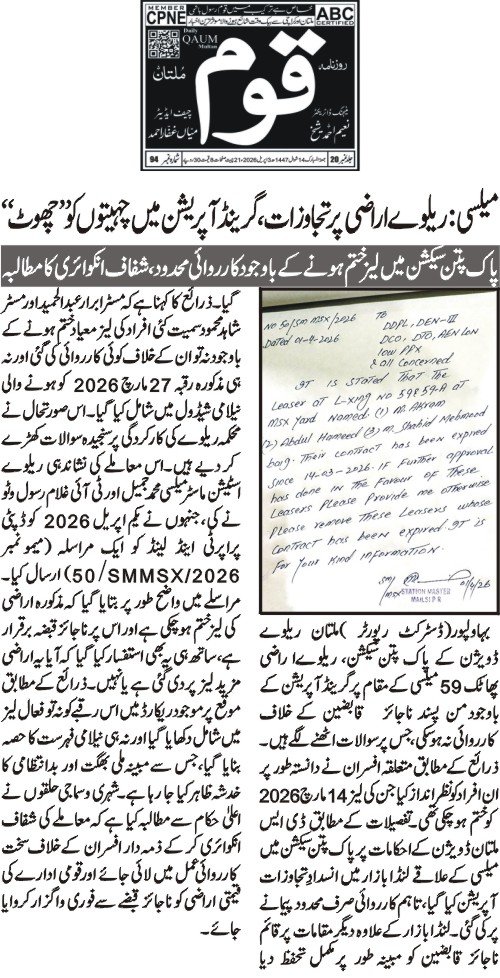 MEMBER
CPNE
خاص ہے ترکیب میں قوم رسول ہاشمی
ABC
CERTIFIED
ملتان اور کراچی سے بیک وقت شائع ہونے والا موقر ترین اخبار
Daily
QAUM
Multan
ملتان
روزنامہ
قوم
چیف ایڈیٹر
میاں غفار احمد
مینجنگ ڈائریکٹر
نعیم احمد شیخ
جلد نمبر 20
14 شوال 1447ھ 3 اپریل 2026ء 21 چیت صفحات 8 قیمت 30 روپے
شمارہ نمبر 94
میلسی: ریلوے اراضی پر تجاوزات، گرینڈ آپریشن میں چہیتوں کو ”چھوٹ“
پاک پتن سیکشن میں لیز ختم ہونے کے باوجود کارروائی محدود، شفاف انکوائری کا مطالبہ
No 50/SM MSX/2026
Dated 01-4-2026
To
DDPL, DEN-III
DCO, DTO, AEN LON
IOW PPX
& all Concerned
It is stated that the
Leaser at L-Xing No 59859-A at
MSX yard Named: (1) M. Akram
(2) Abdul Hameed (3) M. Shahid Mehmood
baig. Their contract has been expired
Since 14-03-2026. If Further approval
has done in the Favour of These
Leasers Please Provide me otherwise
Please remove These Leasers whose
Contract has been expired. It is
For your Kind information.
SM
MSX
01/4/26
STATION MASTER
MAILSI P R
بہاولپور (ڈسٹرکٹ رپورٹر) ملتان ریلوے
ڈویژن کے پاک پتن سیکشن، ریلوے اراضی
پھاٹک 59 میلسی کے مقام پر گرینڈ آپریشن کے
باوجود من پسند ناجائز قابضین کے خلاف
کارروائی نہ ہوسکی، جس پر سوالات اٹھنے لگے ہیں۔
ذرائع کے مطابق متعلقہ افسران نے دانستہ طور پر
ان افراد کو نظر انداز کیا جن کی لیز 14 مارچ 2026
کو ختم ہوچکی تھی۔ تفصیلات کے مطابق ڈی ایس
ملتان ڈویژن کے احکامات پر پاک پتن سیکشن میں
میلسی کے علاقے لنڈا بازار میں انسداد تجاوزات
آپریشن کیا گیا، تاہم کارروائی صرف محدود پیمانے
پر کی گئی۔ لنڈا بازار کے علاوہ دیگر مقامات پر قائم
ناجائز قابضین کو مبینہ طور پر مکمل تحفظ دیا
گیا۔ ذرائع کا کہنا ہے کہ مسٹر ابرار عبدالحمید اور مسٹر
شاہد محمود سمیت کئی افراد کی لیز میعاد ختم ہونے کے
باوجود نہ تو ان کے خلاف کوئی کارروائی کی گئی اور نہ
ہی مذکورہ رقبہ 27 مارچ 2026 کو ہونے والی
نیلامی شیڈول میں شامل کیا گیا۔ اس صورتحال نے
محکمہ ریلوے کی کارکردگی پر سنجیدہ سوالات کھڑے
کر دیے ہیں۔ اس معاملے کی نشاندہی ریلوے
اسٹیشن ماسٹر میلسی محمد جمیل اور ٹی آئی غلام رسول وٹو
نے کی، جنہوں نے یکم اپریل 2026 کو ڈپٹی
پراپرٹی اینڈ لینڈ کو ایک مراسلہ (میمو نمبر
50/SMMSX/2026) ارسال کیا۔
مراسلے میں واضح طور پر بتایا گیا کہ مذکورہ اراضی
کی لیز ختم ہوچکی ہے اور اس پر ناجائز قبضہ برقرار
ہے، ساتھ ہی یہ بھی استفسار کیا گیا کہ آیا یہ اراضی
مزید لیز پر دی گئی ہے یا نہیں۔ ذرائع کے مطابق
موقع پر موجود ریکارڈ میں اس رقبے کو نہ تو فعال لیز
میں شامل دکھایا گیا اور نہ ہی نیلامی فہرست کا حصہ
بنایا گیا، جس سے مبینہ ملی بھگت اور بدانتظامی کا
خدشہ ظاہر کیا جا رہا ہے۔ شہری و سماجی حلقوں نے
اعلیٰ حکام سے مطالبہ کیا ہے کہ معاملے کی شفاف
انکوائری کر کے ذمہ دار افسران کے خلاف سخت
کارروائی عمل میں لائی جائے اور قومی ادارے کی
قیمتی اراضی کو ناجائز قبضے سے فوری واگزار کروایا
جائے۔